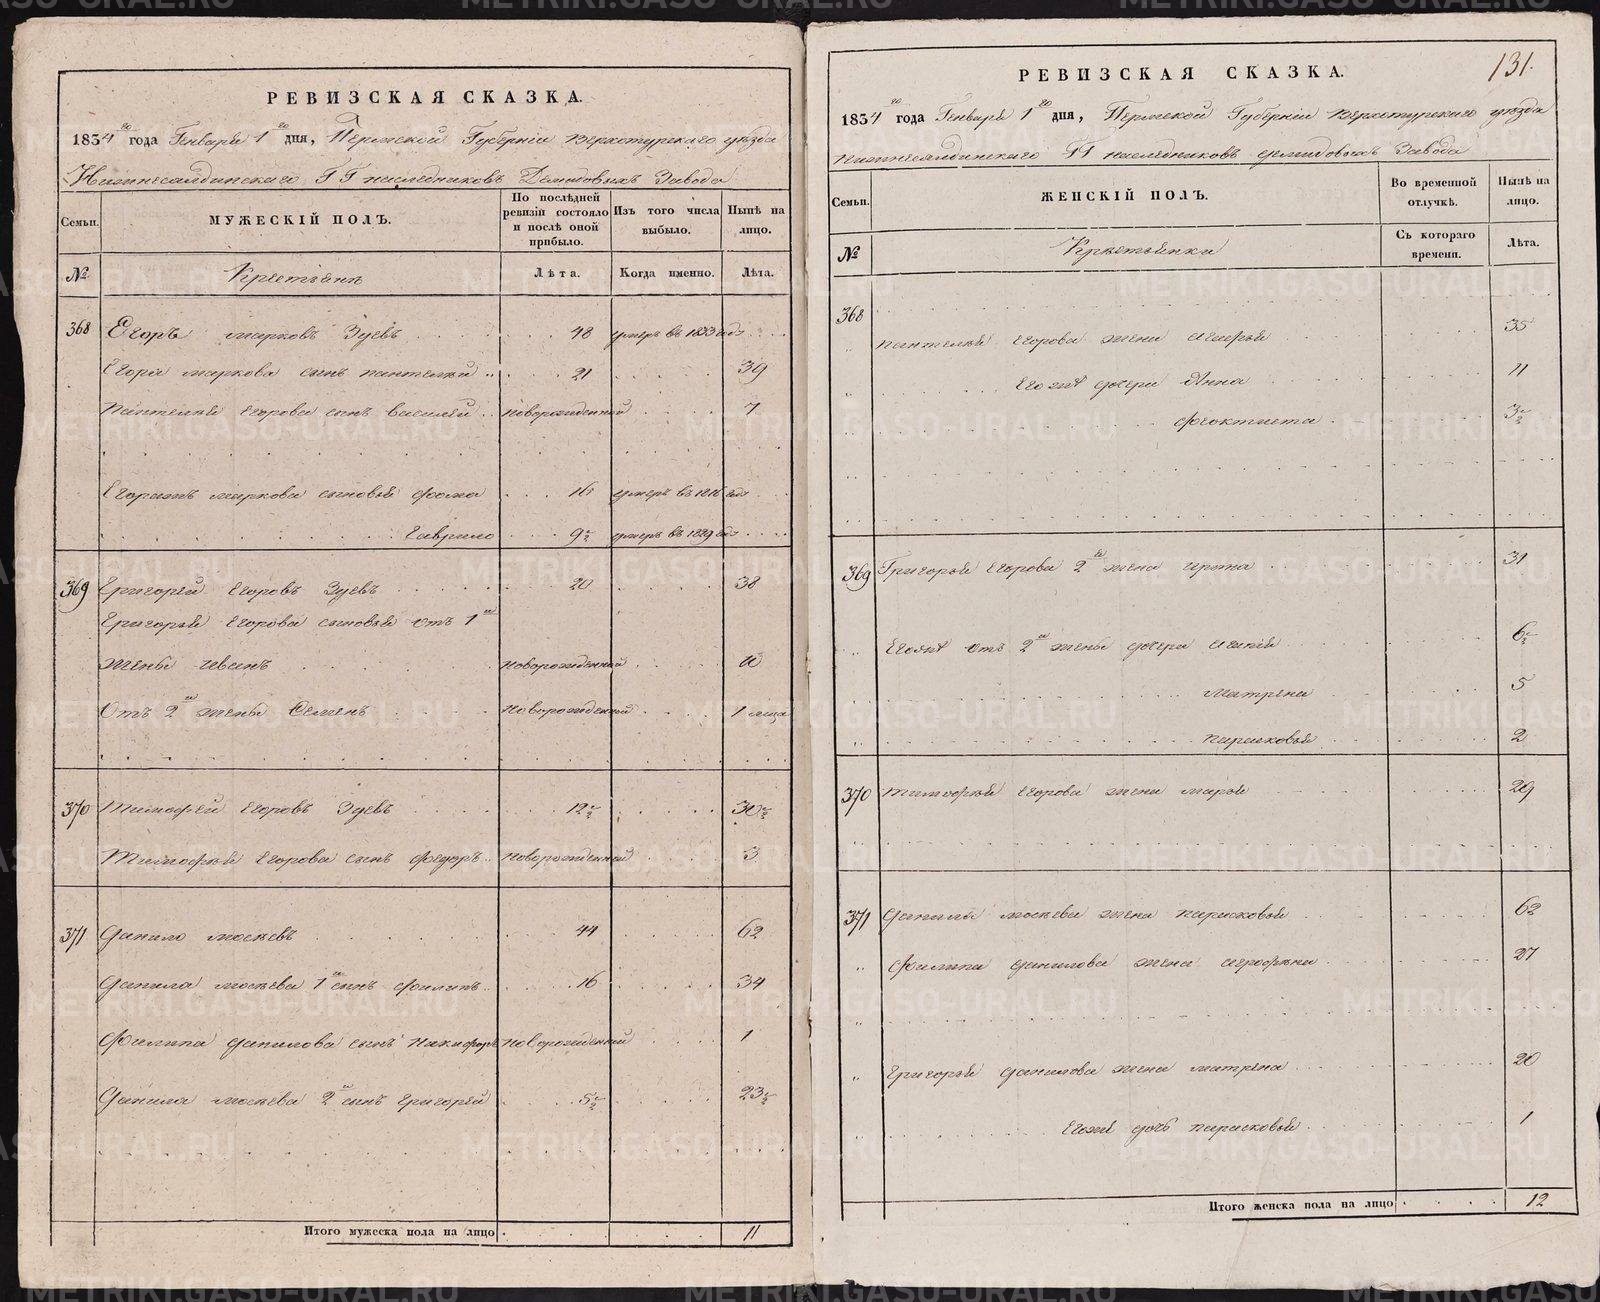 РЕВИЗСКАЯ СКАЗКА.
1834го года Генваря 1го дня, Пермской Губернии Верхотурского уезда
Нижнесалдинского ГГ наследниковъ Демидовыхъ Завода
Семьи.
МУЖЕСКІЙ ПОЛЪ.
По послѣдней ревизіи состояло и послѣ оной прибыло.
Изъ того числа выбыло.
Нынѣ на лицо.
№
Крестьянъ
Лѣта.
Когда именно.
Лѣта.
368 Егоръ Марковъ Зуевъ 48 умеръ въ 1833 годе
Егора Маркова сынъ Пантелей 21 39
Пантелея Егорова сынъ Василей новорожденный 7
Егоръ Маркова сыновья Фома 16 умеръ въ 1816 годе
Гаврило 9½ умеръ въ 1829 годе
369 Григорей Егоровъ Зуевъ 20 38
Григорья Егорова сыновья отъ 1й
жены Иванъ новорожденный 10
Отъ 2й жены Семенъ новорожденный 1 меца
370 Тимофей Егоровъ Зуевъ 12½ 30½
Тимофея Егорова сынъ Федоръ новорожденный 3
371 Данило Мосѣевъ 44 62
Данила Мосѣева 1й сынъ Филипъ 16 34
Филипа Данилова сынъ Никифоръ новорожденный 1
Данила Мосѣева 2й сынъ Григорей 5½ 23½
Итого мужеска пола на лицо 11
131.
РЕВИЗСКАЯ СКАЗКА.
1834го года Генваря 1го дня, Пермской Губерніи Верхотурскаго уезда
Нижнесалдинскаго ГГ наследниковъ Демидовыхъ Завода
Семьи.
ЖЕНСКІЙ ПОЛЪ.
Во временной отлучкѣ.
Нынѣ на лицо.
№
Крестьянки
Съ котораго времени.
Лѣта.
368
Пантелея Егорова жена Агафья 35
Его жъ дочери Анна 11
Феоктиста 3½
369 Григорья Егорова 2я жена Ирина 31
Его жъ отъ 2й жены дочери Агапия 6½
Матрена 5
Парасковья 2
370 Тимофея Егорова жена Марья 29
371 Данилы Мосѣева жена Парасковья 62
Филипа Данилова жена Аграфена 27
Григорья Данилова жена Матрена 20
Егожъ дочь Парасковья 1
Итого женска пола на лицо 12
METRIKI.GASO-URAL.RU